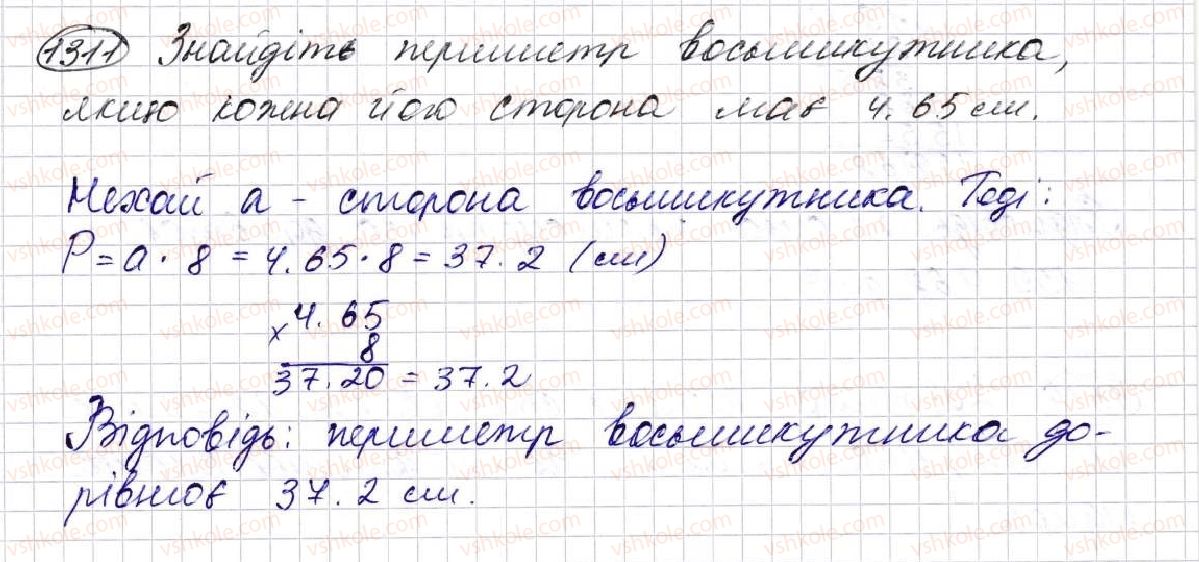 1311 Знайдіть периметр восьмикутника,
якщо кожна його сторона має 4.65 см.
Нехай a - сторона восьмикутника. Тоді:
P = a · 8 = 4.65 · 8 = 37.2 (см)
× 4.65
8
37.20 = 37.2
Відповідь: периметр восьмикутника до-
рівнює 37.2 см.